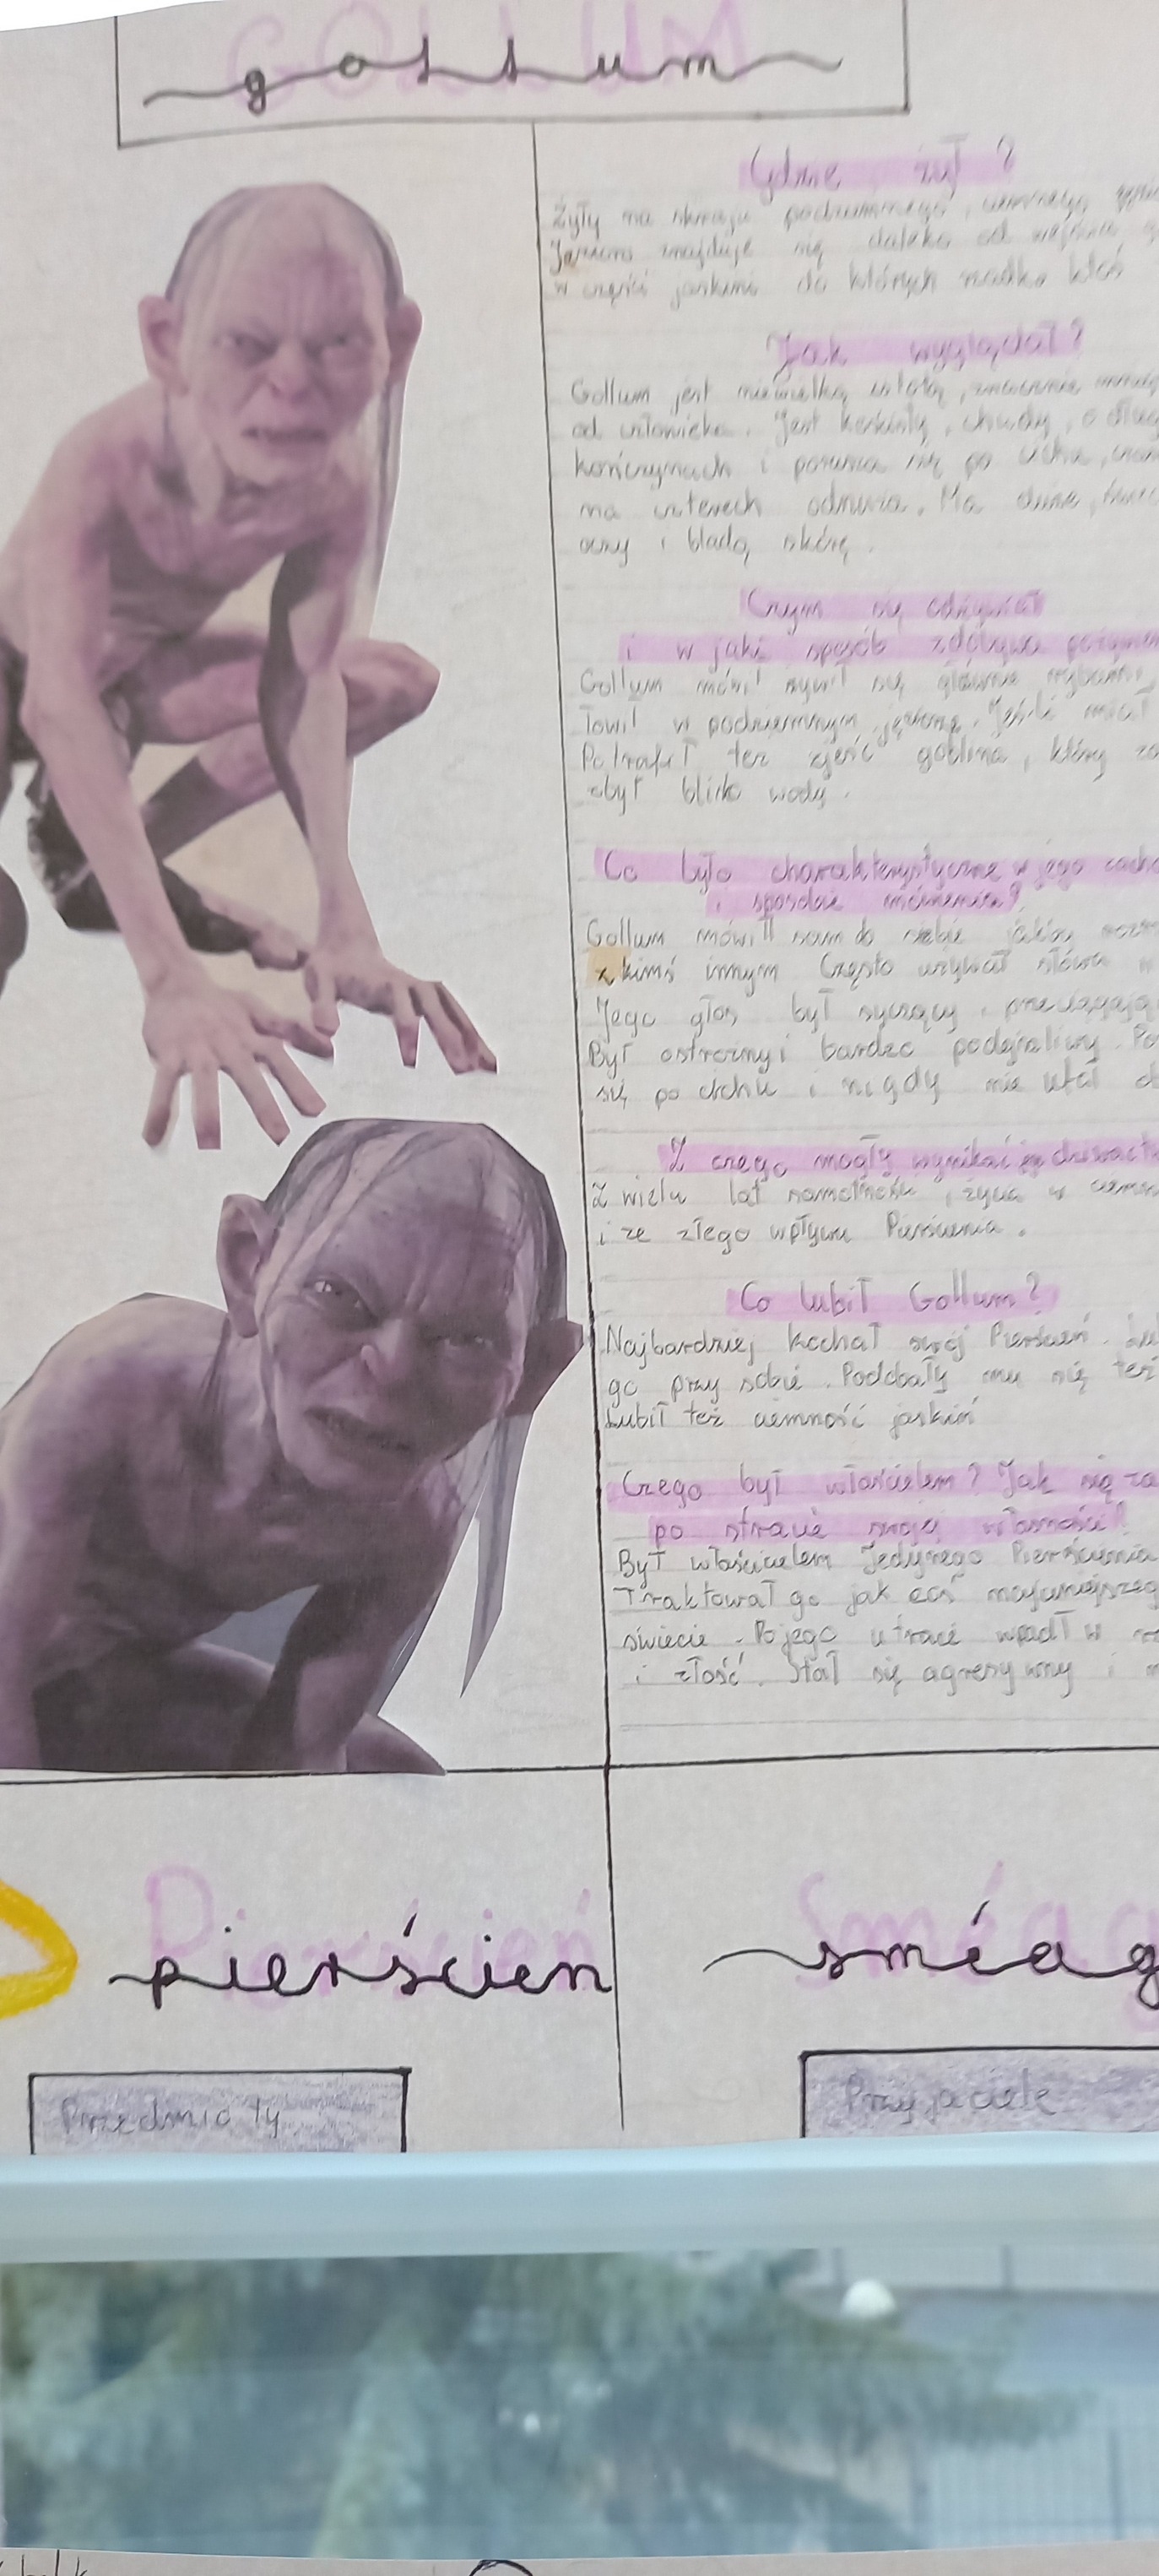 GOLLUM
gollum
Gdzie żył?
Żyły na skraju podziemnego, ciemnego
Jezioro znajduje się daleko od wejścia
w części jaskini do których rzadko ktoś
Jak wyglądał?
Gollum jest niewielką istotą, znacznie
od człowieka. Jest kościsty, chudy, o
kończynach i porusza się po cichu,
na czterech odnóża. Ma duże,
oczy i bladą skórę.
Czym się odżywiał
i w jaki sposób zdobywa
Gollum mówił żywił się głównie rybami,
Łowił w podziemnym jeziorze. Jeśli miał
Potrafił też zjeść goblina, który
zbyt blisko wody.
Co było charakterystyczne w jego
i sposobie mówienia?
Gollum mówił sam do siebie jakby
z kimś innym Często używał słowa
Jego głos był syczący,
Był ostrożny i bardzo podejrzliwy.
się po cichu i nigdy nie ufał
Z czego mogły wynikać jeg
Z wielu lat samotności, życia w
i ze złego wpływu Pierścienia.
Co lubił Gollum?
Najbardziej kochał swój Pierścień.
go przy sobie. Podobały mu się też
Lubił też ciemność jaskiń
Czego był właścicielem? Jak się
po stracie swojej własności?
Był właścicielem Jedynego Pierścienia
Traktował go jak coś
świecie. Po jego utracie wpadł w
i złość. Stał się agresywny i
Pierścień
pierścień
Sméag
sméag
Przedmioty
Przyjaciele